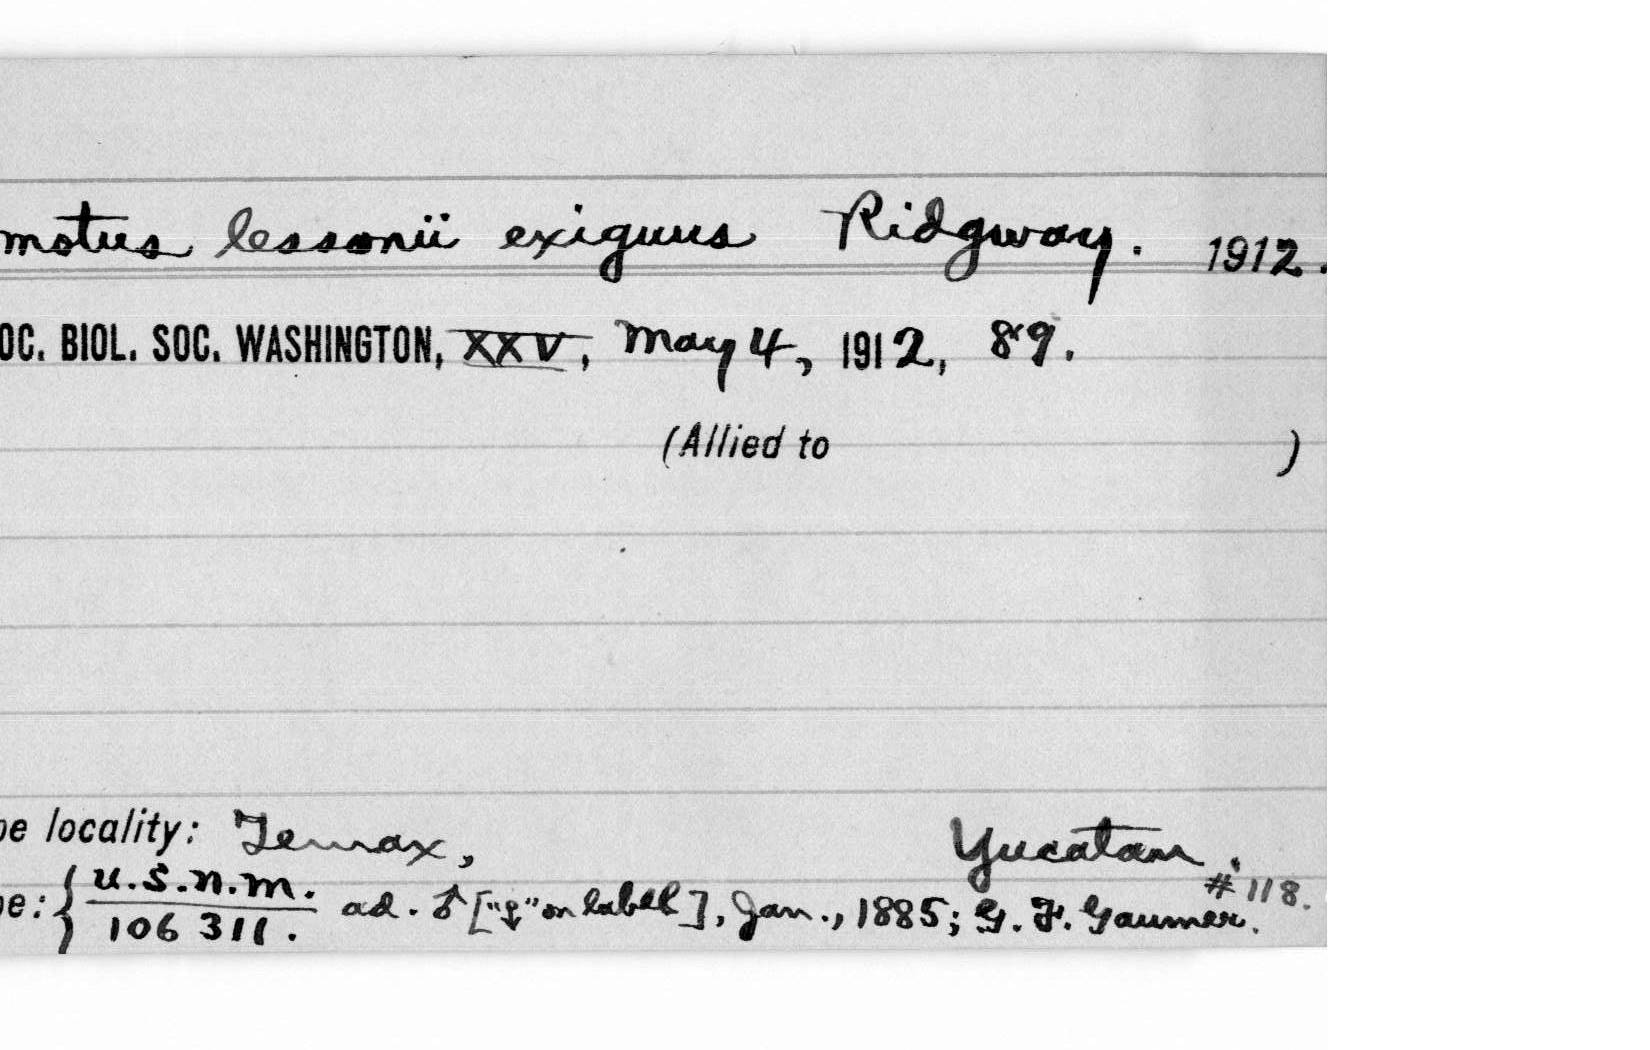 motus lessonii exiguus Ridgway. 1912.
OC. BIOL. SOC. WASHINGTON, XXV, May 4, 1912, 89.
(Allied to )
pe locality: Temax, Yucatan.
#118.
pe: { U.S.N.M. 106 311. ad. ♂ ["♀" on label], Jan., 1885; G. F. Gaumer.